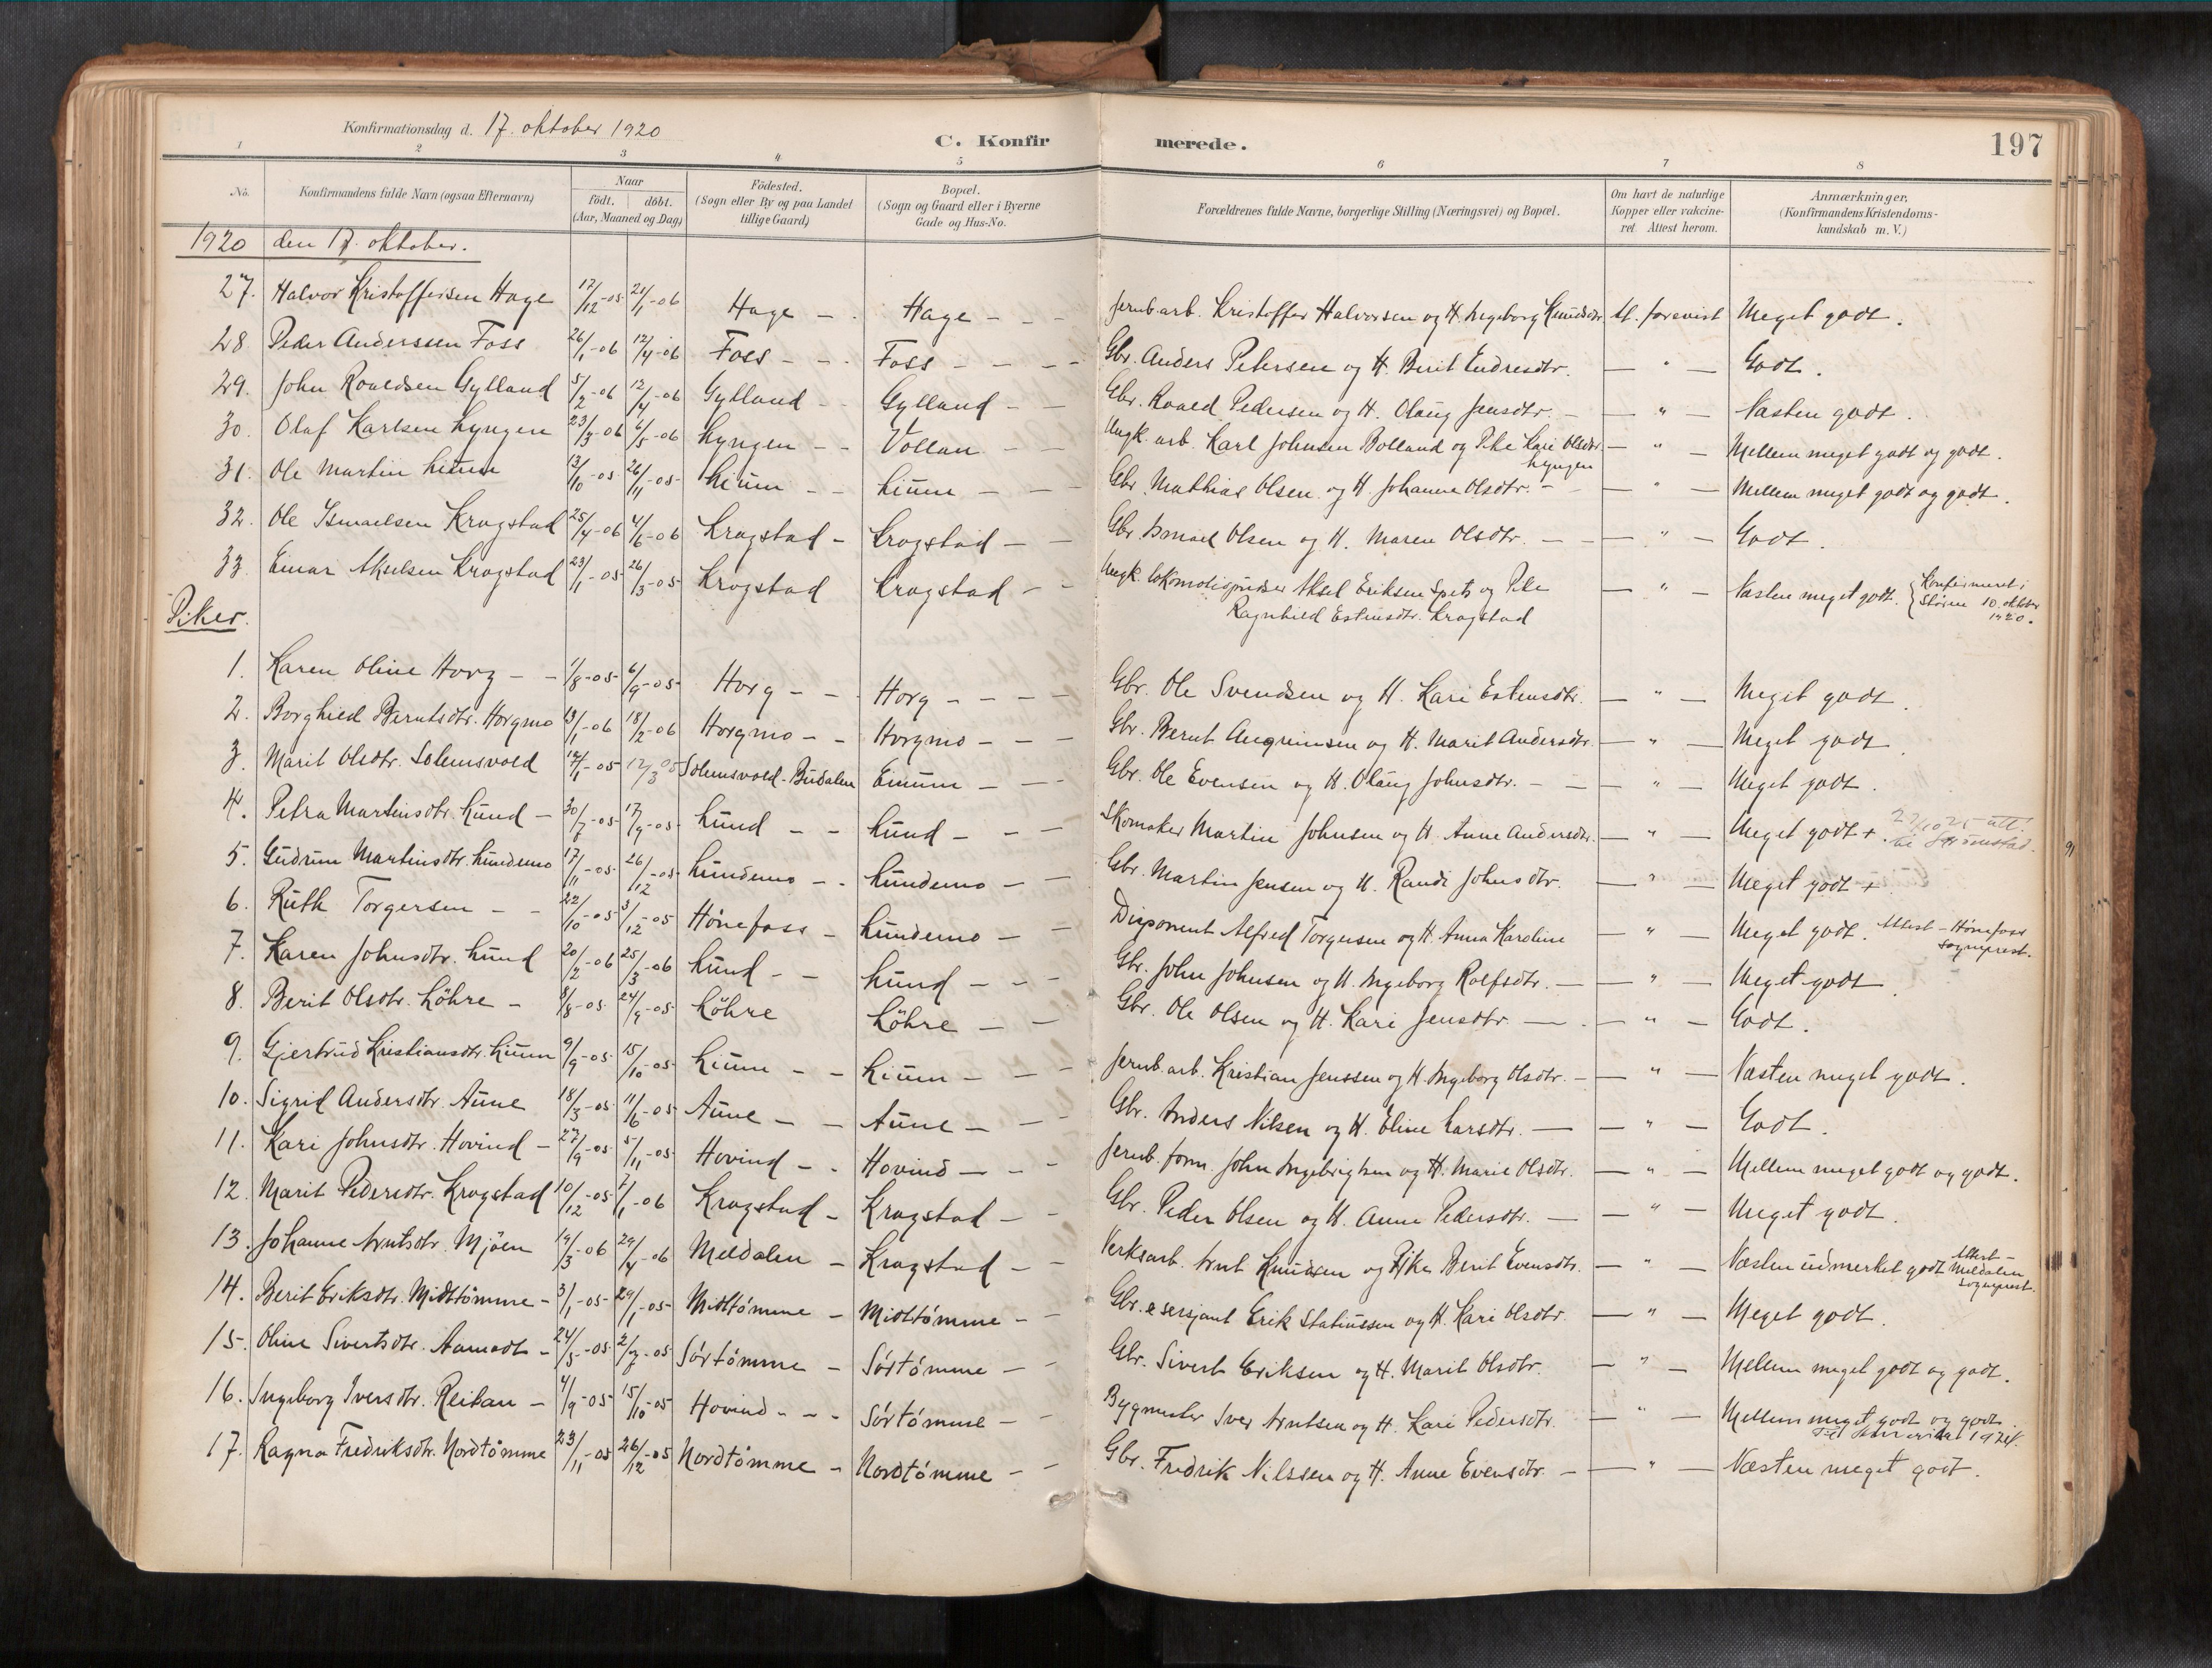 Konfirmationsdag d. 17. oktober 1920
C. Konfirmerede.
197
1 2 3 4 5 6 7 8
No. | Konfirmandens fulde Navn (ogsaa Efternavn) | Naar født. | døbt. (Aar, Maaned og Dag) | Födested. (Sogn eller By og paa Landet tillige Gaard) | Bopæl. (Sogn og Gaard eller i Byerne Gade og Hus-No. | Forældrenes fulde Navne, borgerlige Stilling (Næringsvei) og Bopæl. | Om havt de naturlige Kopper eller vakcineret. Attest herom. | Anmærkninger, (Konfirmandens Kristendomskundskab m. V.)
1920 den 17. oktober.
27. Halvor Kristoffersen Hage 17/12-05 21/1-06 Hage - - Hage - - Jernb.arb. Kristoffer Halvorsen og H. Ingeborg Knudsdtr. At. forevist Meget godt.
28 Peder Anderssen Foss 26/1-06 12/4-06 Foss - - Foss - - - Gbr. Anders Petersen og H. Berit Endresdtr. — " — Godt.
29. John Roaldsen Gylland 5/2-06 12/4-06 Gylland - - Gylland - - Gbr. Roald Pedersen og H. Olaug Jensdtr. - — " — Næsten godt.
30. Olaf Karlsen Lyngen 23/3-06 6/5-06 Lyngen - - Vollan - - Ungk. arb. Karl Johnsen Bolland og Pike Kari Olsdtr. Lyngen — " — Mellem meget godt og godt.
31. Ole Martin Lium 13/10-05 26/11-05 Lium - - Lium - - - Gbr. Mathias Olsen og H. Johanna Olsdtr. - — " — Mellem meget godt og godt.
32. Ole Ismaelsen Krogstad 25/4-06 4/6-06 Krogstad - Krogstad - - Gbr. Ismael Olsen og H. Maren Olsdtr. — — " — Godt.
33. Einar Akselsen Krogstad 23/1-05 26/3-05 Krogstad Krogstad - - Ungk. lokomotivpudser Aksel Eriksen Spets og Pike Ragnhild Estensdtr. Krogstad — " — Næsten meget godt. {Konfirmeret i Støren 10. oktober 1920.
Piker.
1. Karen Oline Horg - - 1/8-05 6/9-05 Horg - - Horg - - - - Gbr. Ole Svendsen og H. Kari Estensdtr. — " — Meget godt.
2. Borghild Berntsdtr. Horgmo 13/1-06 18/2-06 Horgmo - - Horgmo - - - Gbr. Bernt Angrimsen og H. Marit Andersdtr. — " — Meget godt.
3. Marit Olsdtr. Solemsvold 14/1-05 12/3 05 Solemsvold-Budalen Einum - - Gbr. Ole Evensen og H. Olaug Johnsdtr. - — " — Meget godt.
4. Petra Martinsdtr. Lund - 30/7-05 17/9-05 Lund - - Lund - - - Skomaker Martin Johnsen og H. Anne Andersdtr. — " — Meget godt +.
5. Gudrun Martinsdtr. Lundemo 17/11-05 26/12-05 Lundemo - - Lundemo - - Gbr. Martin Jensen og H. Randi Johnsdtr. — " — Meget godt +
6. Ruth Torgersen - - 22/10-05 3/12-05 Hönefoss - Lundemo - - Disponent Alfred Torgersen og H. Anna Karoline — " — Meget godt. Attest - Hönefoss sogneprest.
7. Karen Johnsdtr. Lund 20/2-06 25/3-06 Lund - - Lund - - - Gbr. John Johnsen og H. Ingeborg Rolfsdtr. — — " — Meget godt.
8. Berit Olsdtr. Löhre - 8/8-05 24/9-05 Löhre Löhre - - Gbr. Ole Olsen og H. Kari Jensdtr. — — " — Godt.
9. Gjertrud Kristiansdtr. Lium 9/9-05 15/10-05 Lium - - Lium - - - Jernb.arb. Kristian Jenssen og H. Ingeborg Olsdtr. - — " — Næsten meget godt.
10. Sigrid Andersdtr. Aune 18/3-05 11/6-05 Aune - - Aune - - Gbr. Anders Nilsen og H. Eline Larsdtr. — — " — Godt.
11. Kari Johnsdtr. Hovind - 27/9-05 5/11-05 Hovind - - Hovind - - - Jernb. form. John Ingebrigtsen og H. Marie Olsdtr. — " — Mellem meget godt og godt.
12. Marit Pedersdtr. Krogstad 10/12-05 7/1-06 Krogstad - Krogstad - - Gbr. Peder Olsen og H. Anne Pedersdtr. — — " — Meget godt.
13. Johanne Arntsdtr. Mjöen 19/3-06 29/4-06 Meldalen - Krogstad - - Verksarb. Arnt Knudsen og Pike Berit Evensdtr. — " — Næsten udmerket godt Attest - Meldalen sogneprest.
14. Berit Eriksdtr. Midttömme - 3/1-05 29/1-05 Midttömme - Midttömme - - Gbr. & sersjant Erik Statiussen og H. Kari Olsdtr. — " — Meget godt.
15. Oline Sivertsdtr. Aamodt - 24/5-05 2/7-05 Sörtömme - Sörtömme - - Gbr. Sivert Eriksen og H. Marit Olsdtr. — " — Mellem meget godt og godt.
16. Ingeborg Iversdtr. Reitan - 4/9-05 15/10-05 Hovind - - - Sörtömme - - Bygmester Iver Arntsen og H. Kari Pedersdtr. — " — Mellem meget godt og godt.
17. Ragna Fredriksdtr. Nordtömme 23/11-05 26/12-05 Nordtömme - Nordtömme - - Gbr. Fredrik Nilssen og H. Anne Evensdtr. - — " — Næsten meget godt.